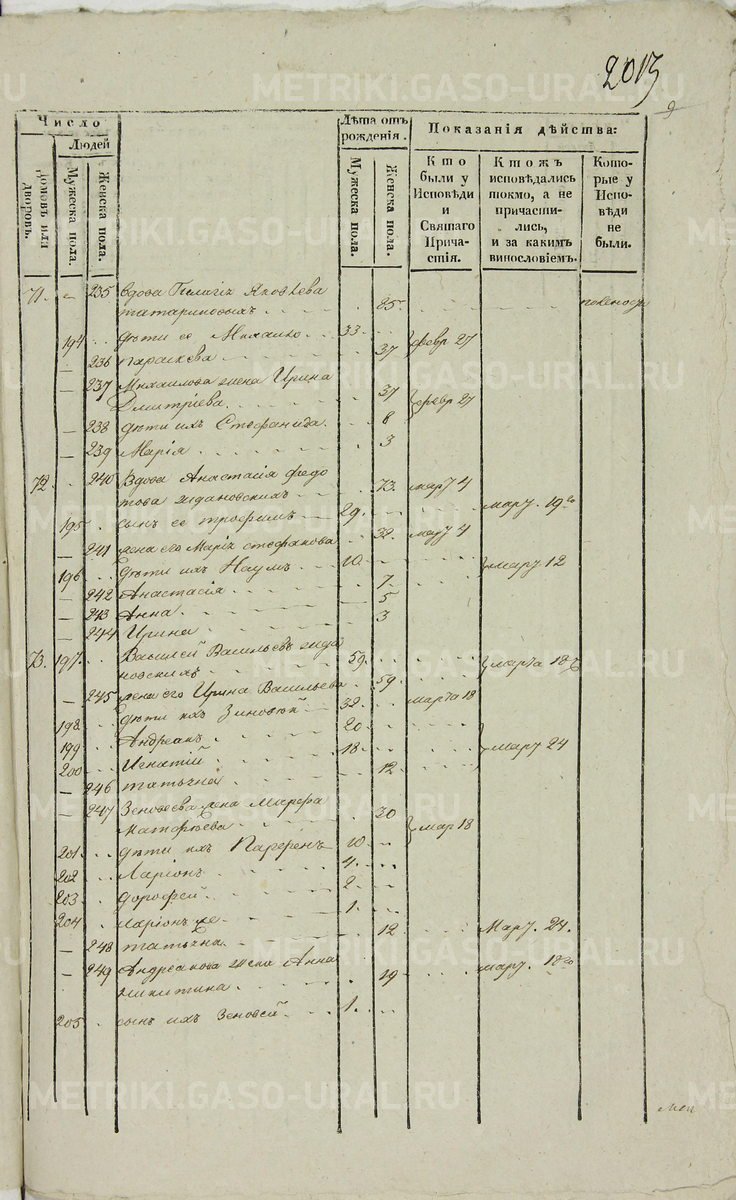 METRIKI.GASO-URAL.RU
2013
9
Число
Людей
Домовъ или дворовъ.
Мужеска пола.
Женска пола.
Лѣта отъ рожденія.
Мужеска пола.
Женска пола.
Показанія дѣйства:
Кто были у Исповѣди и Святаго Причастія.
Ктожъ исповѣдались токмо, а не причастились, и за какимъ винословіемъ.
Которые у Исповѣди не были.
71. 235 вдова Пилагіа Яковлева
татариновыхъ 85
194 дѣти ее Михаило 33 февр 27
236 параскева 37
237 Михаилова жена Ирина
Дмитріева 37 февр 27
238 дѣти ихъ Стефанида 8
239 Марія 3
72. 240 Вдова Анастасія федо
това ждановскихъ 73 март 4
195 сынъ ее трофимъ 29 март. 19
241 жена его Маріа стефанова 32 март 4
196 дѣти ихъ Наумъ 10 март 12
242 Анастасія 7
243 Анна 5
244 Ирина 3
73. 197 Василей Васильевъ жда
новскихъ 59 марта 18
245 жена его Ирина Васильева 59 марта 18
198 дѣти ихъ Зиновей 32
199 Андреанъ 20 март 24
200 Игнатій 18
246 татьяна 12
247 Зеновеева жена Марфа
Матфеева 30 мар 18
201 дѣти ихъ Парфенъ 10
202 Ларіонъ 4
203 дорофей 2
204 ларіонъ же 1
248 татьяна 12 март. 24.
249 Андреанова жена Анна
никитина 19 март. 18
205 сынъ ихъ Зеновей 1